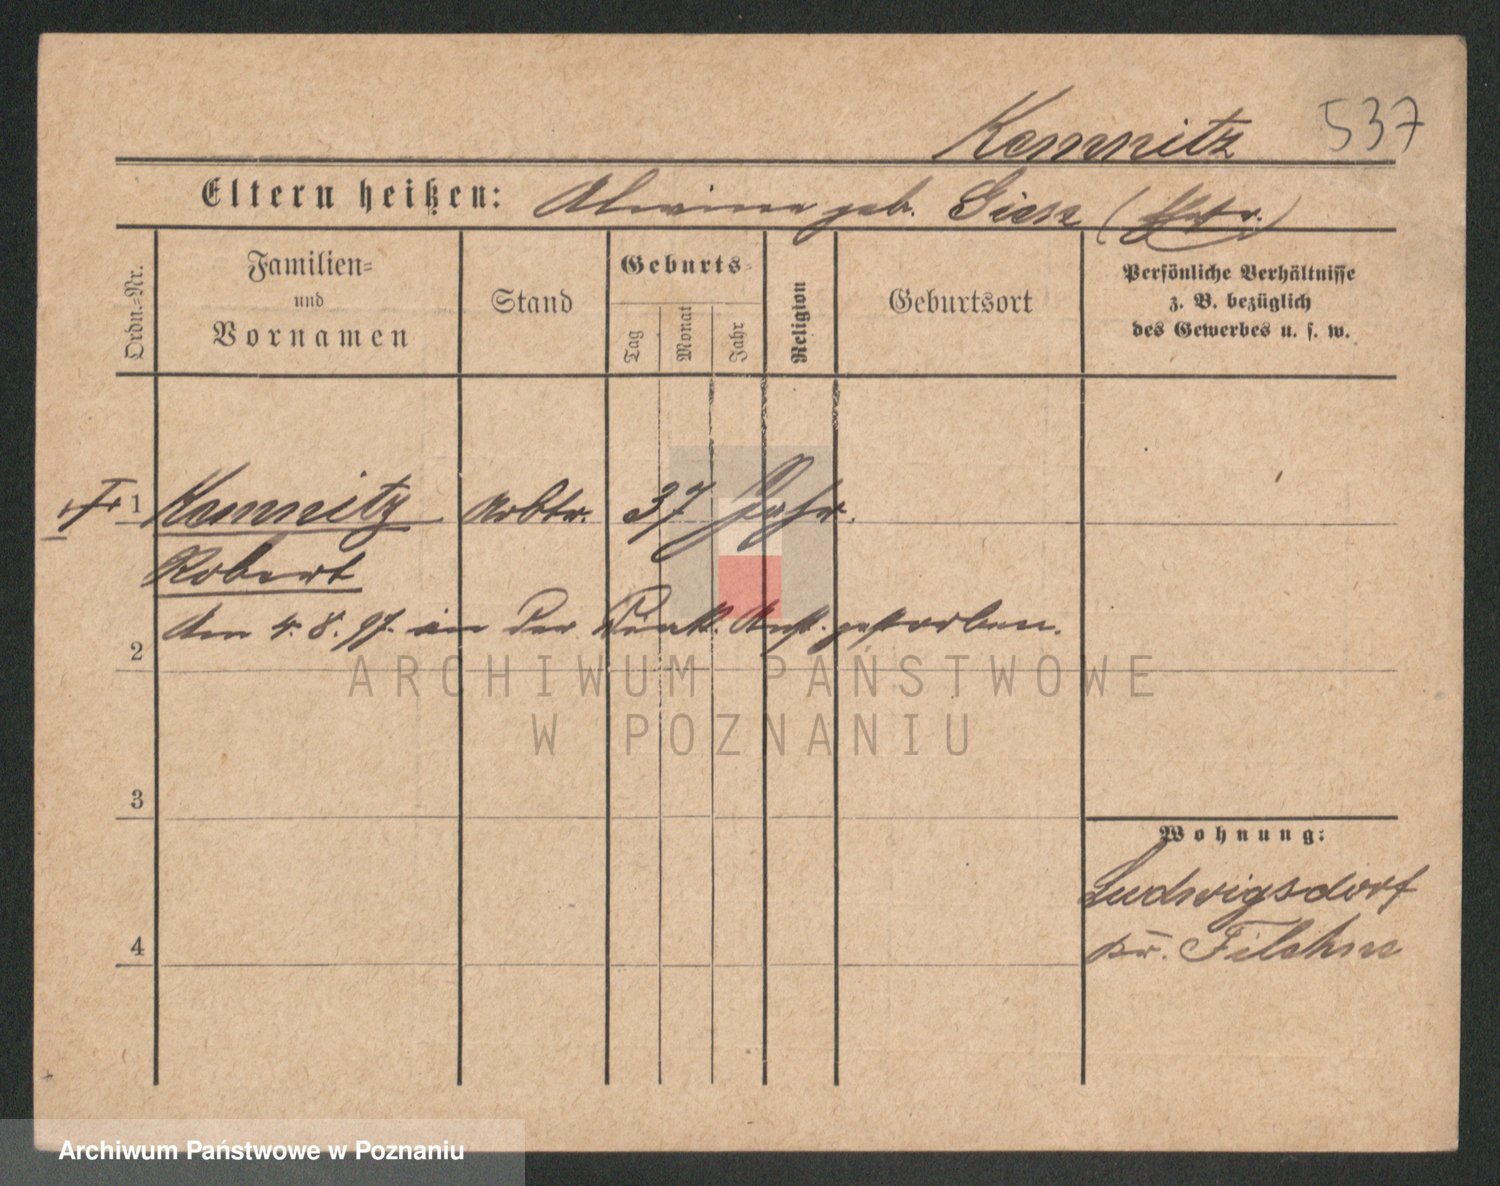 Kemnitz 537
Eltern heißen: Alwine geb. Giese
Ordn.=Nr.
Familien=
und
Vornamen
Stand
Geburts=
Tag
Monat
Jahr
Religion
Geburtsort
Persönliche Verhältnisse
z. B. bezüglich
des Gewerbes u. s. w.
1 Kemnitz Arbtr. 37 Jahr.
Robert
Am 4. 8. 97. in der Diak. Anst. gestorben.
2
3
4
Wohnung:
Ludwigsdorf
Kr. Filehne
ARCHIWUM PAŃSTWOWE
W POZNANIU
Archiwum Państwowe w Poznaniu